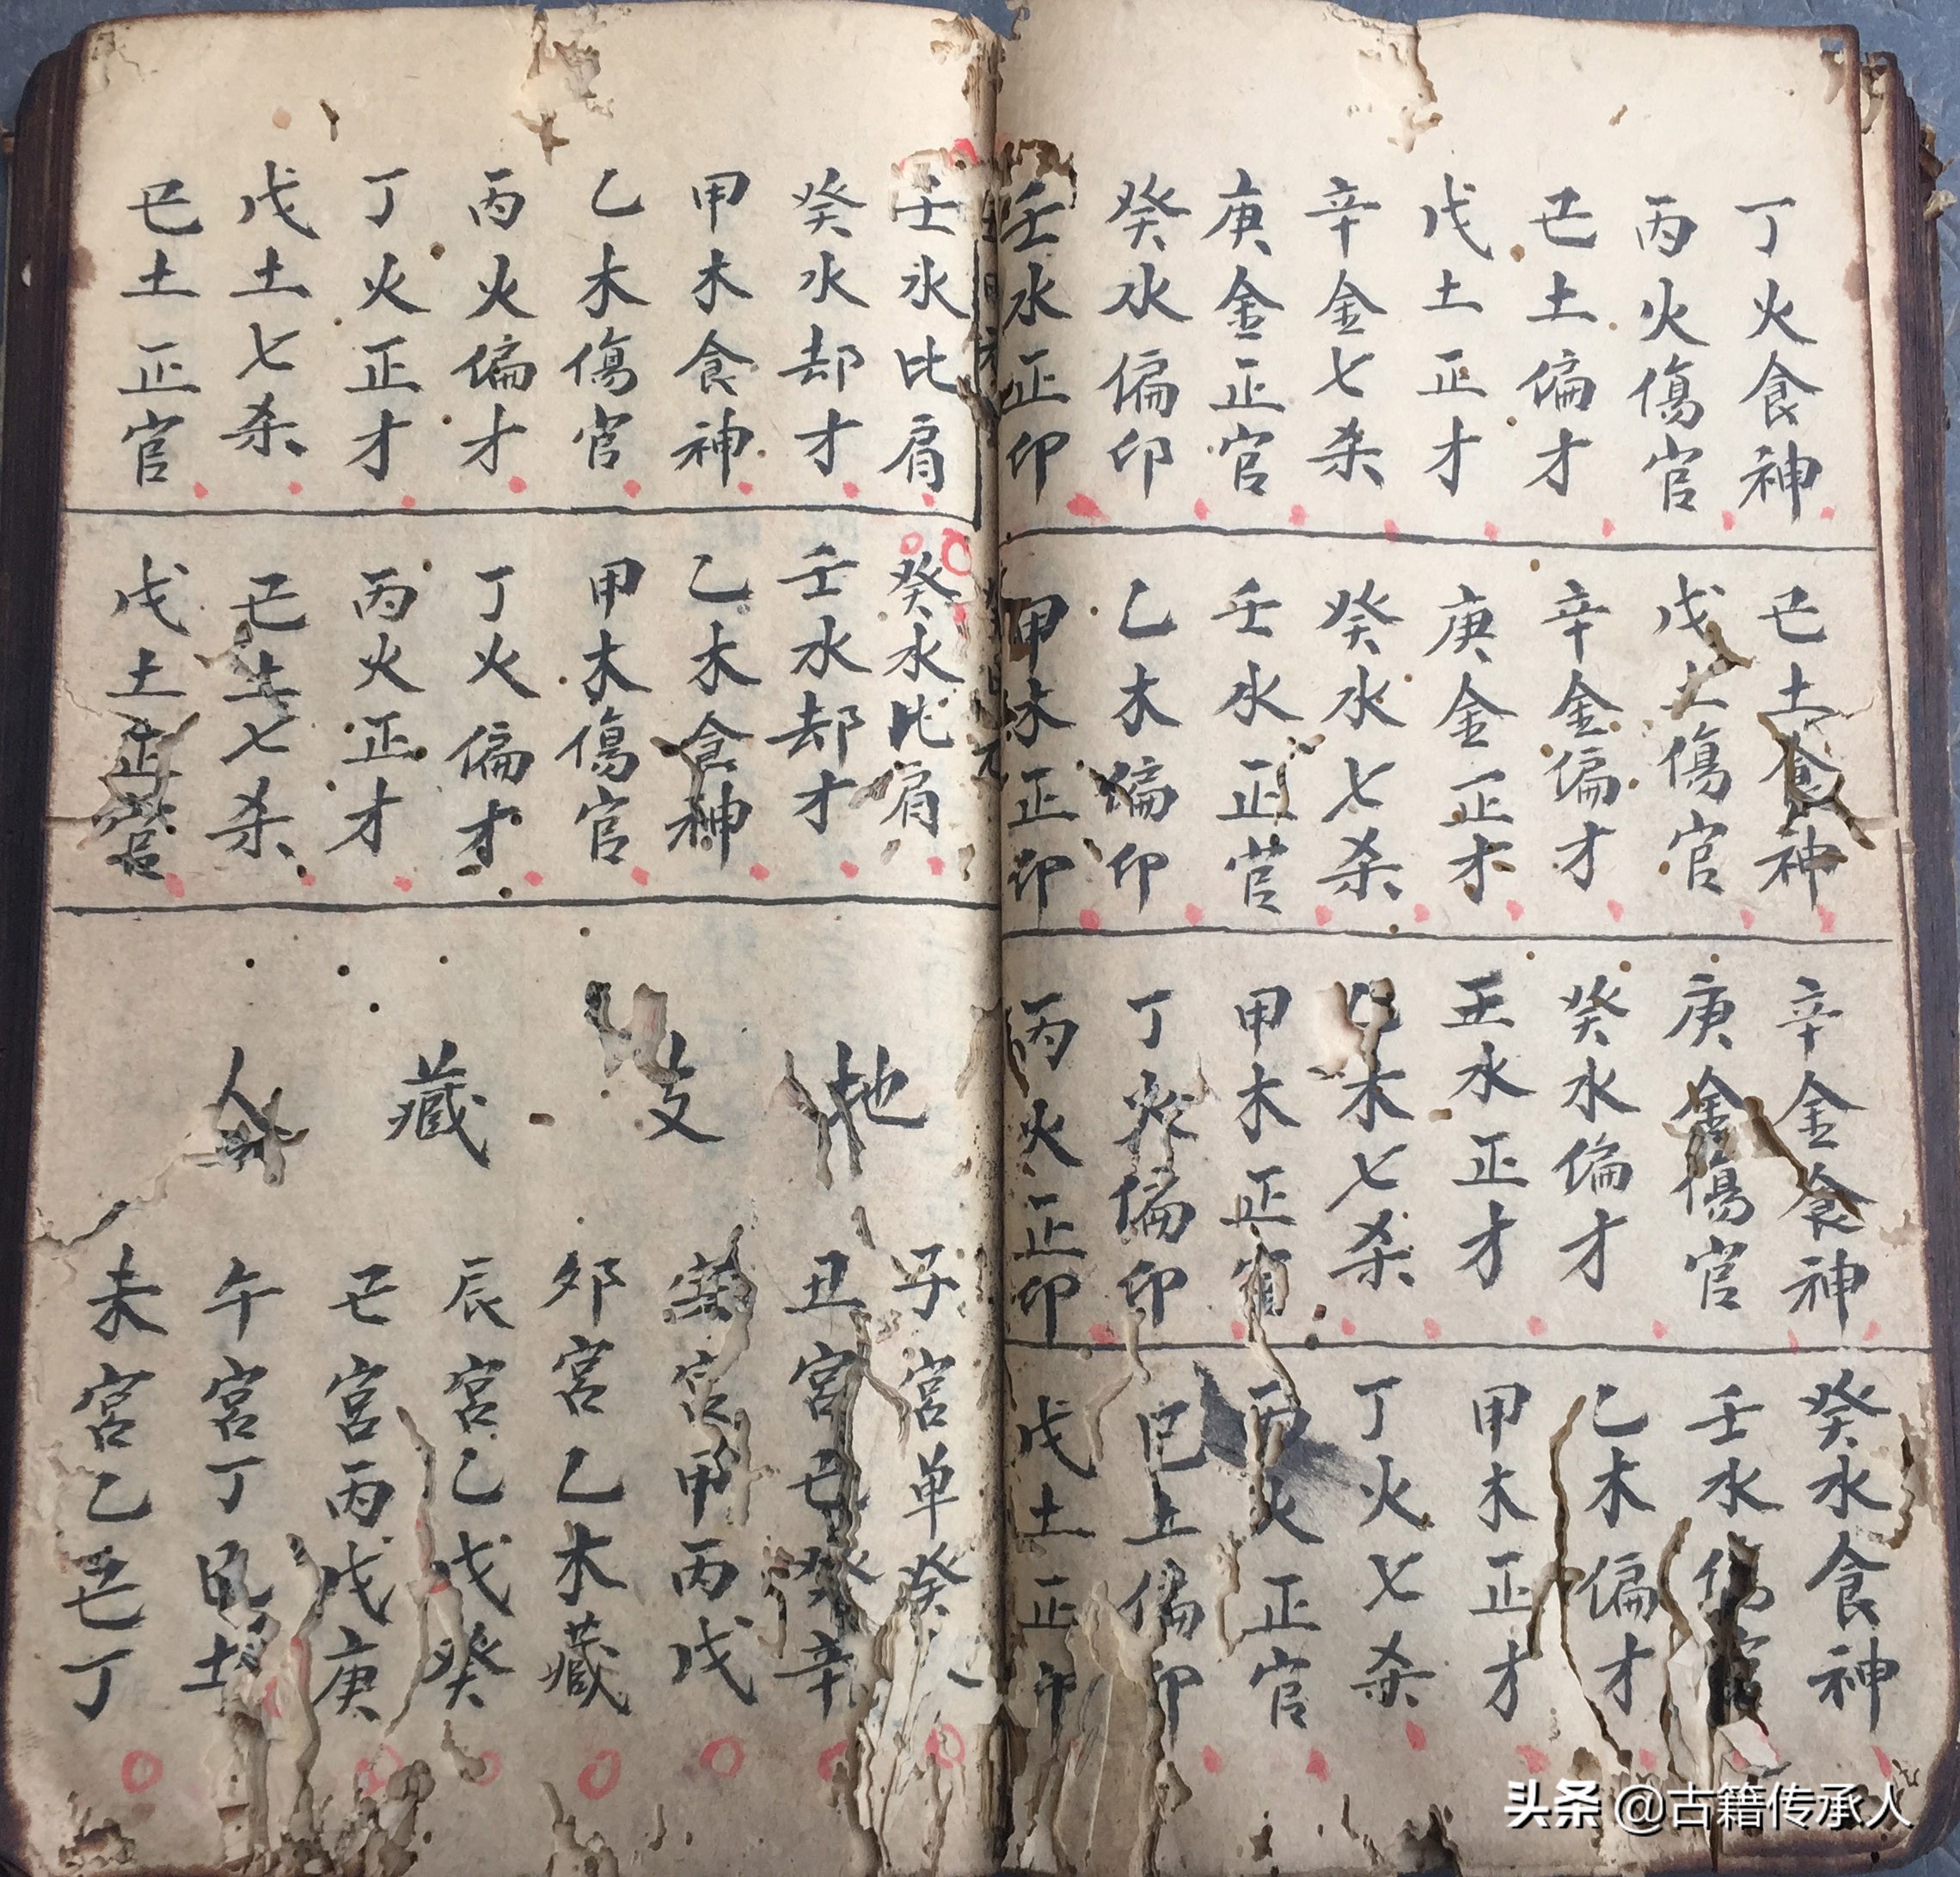 丁火食神
丙火傷官
己土偏才
戊土正才
辛金七杀
庚金正官
癸水偏印
壬水正印
己土食神
戊土傷官
辛金偏才
庚金正才
癸水七杀
壬水正官
乙木偏印
甲木正印
辛金食神
庚金傷官
癸水偏才
壬水正才
乙木七杀
甲木正官
丁火偏印
丙火正印
癸水食神
壬水傷官
乙木偏才
甲木正才
丁火七杀
丙火正官
己土偏印
戊土正印
壬水比肩
癸水却才
甲木食神
乙木傷官
丙火偏才
丁火正才
戊土七杀
己土正官
癸水比肩
壬水却才
乙木食神
甲木傷官
丁火偏才
丙火正才
己土七杀
戊土正官
地支藏人
子宮单癸
丑宮己癸辛
寅宮甲丙戊
夘宮乙木藏
辰宮乙戊癸
巳宮丙戊庚
午宮丁己土
未宮乙己丁
头条 @古籍传承人